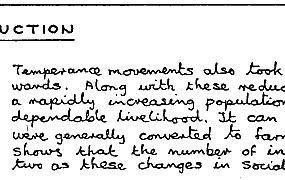 UCTION
Temperance movements also took
wards. Along with these reduc
a rapidly increasing population
dependable livelihood. It can
were generally converted to farm
shows that the number of in
two as these changes in social